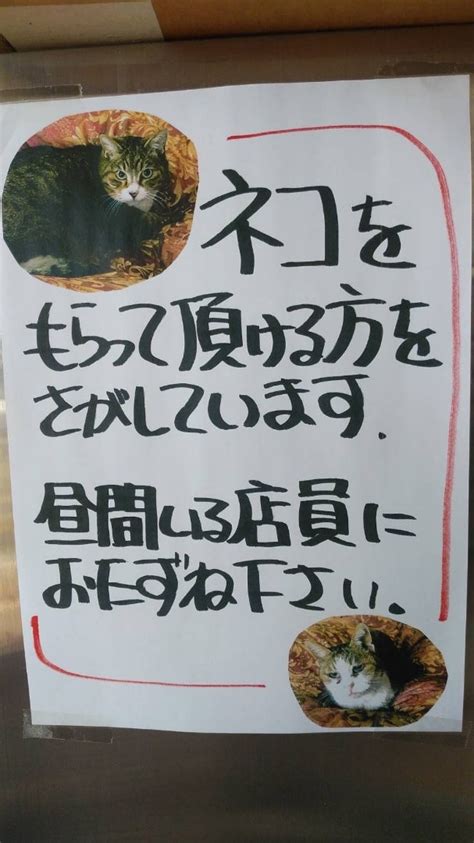 ネコを
もらって頂ける方を
さがしています.
昼間いる店員に
おたずね下さい。